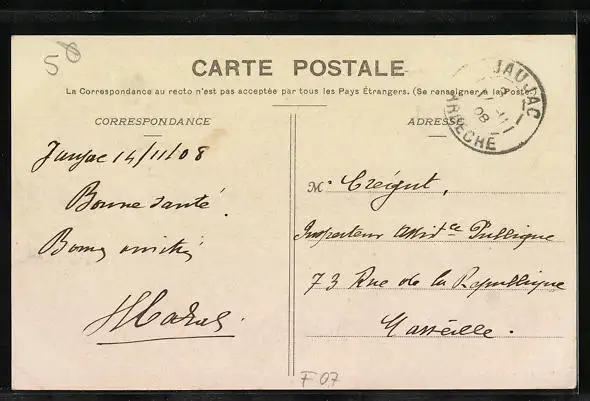 50
CARTE POSTALE
La Correspondance au recto n'est pas acceptée par tous les Pays Étrangers. (Se renseigner à la Poste)
JAUJAC
ARDÈCHE
CORRESPONDANCE
Jaujac 14/11/08
Bonne santé.
Bonne amitié
ADRESSE
M. Creignt,
Inspecteur Assist.ce Publique
73 Rue de la République
Marseille.
F07